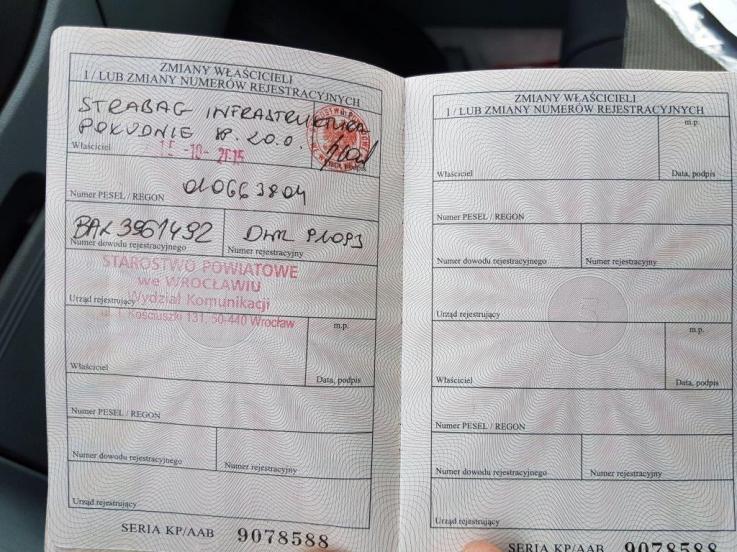 ZMIANY WŁAŚCICIELI
I / LUB ZMIANY NUMERÓW REJESTRACYJNYCH
STRABAG INFRASTRUKTURA
POŁUDNIE SP. Z O.O.
Właściciel
15 -10- 2015
Numer PESEL / REGON
010663804
BAK 3961492
Numer dowodu rejestracyjnego
Numer rejestracyjny
STAROSTWO POWIATOWE
we WROCŁAWIU
Wydział Komunikacji
Urząd rejestrujący
ul. T. Kościuszki 131, 50-440 Wrocław
m.p.
Właściciel
Data, podpis
Numer PESEL / REGON
Numer dowodu rejestracyjnego
Numer rejestracyjny
Urząd rejestrujący
SERIA KP/AAB 9078588
ZMIANY WŁAŚCICIELI
I / LUB ZMIANY NUMERÓW REJESTRACYJNYCH
m.p.
Właściciel
Data, podpis
Numer PESEL / REGON
Numer dowodu rejestracyjnego
Numer rejestracyjny
Urząd rejestrujący
m.p.
Właściciel
Data, podpis
Numer PESEL / REGON
Numer dowodu rejestracyjnego
Numer rejestracyjny
Urząd rejestrujący
SERIA KP/AAB 9078588